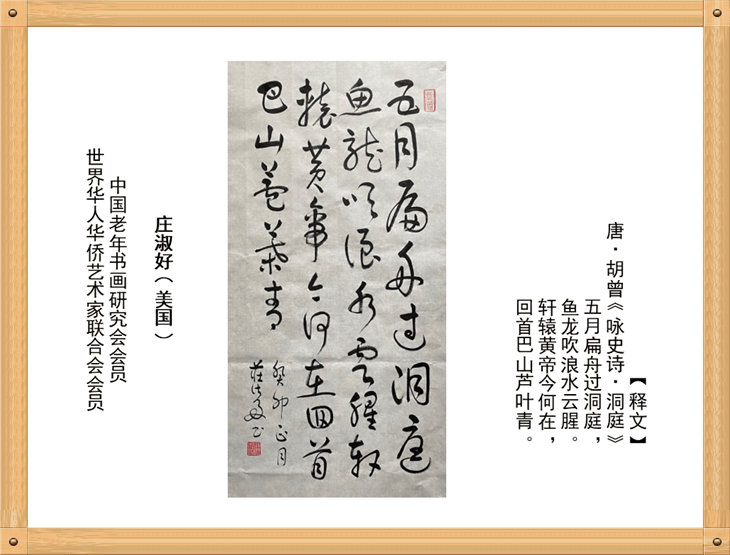 【释文】
唐·胡曾《咏史诗·洞庭》
五月扁舟过洞庭，
鱼龙吹浪水云腥。
轩辕黄帝今何在，
回首巴山芦叶青。
五月扁舟过洞庭
鱼龙吹浪水云腥轩
辕黄帝今何在回首
巴山芦葉青
癸卯正月
莊淑好书
庄淑好（美国）
中国老年书画研究会会员
世界华人华侨艺术家联合会会员